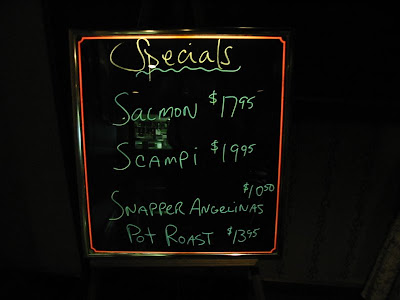 Specials
Salmon $17.95
Scampi $19.95
$10.50
Snapper Angelinas
Pot Roast $13.95